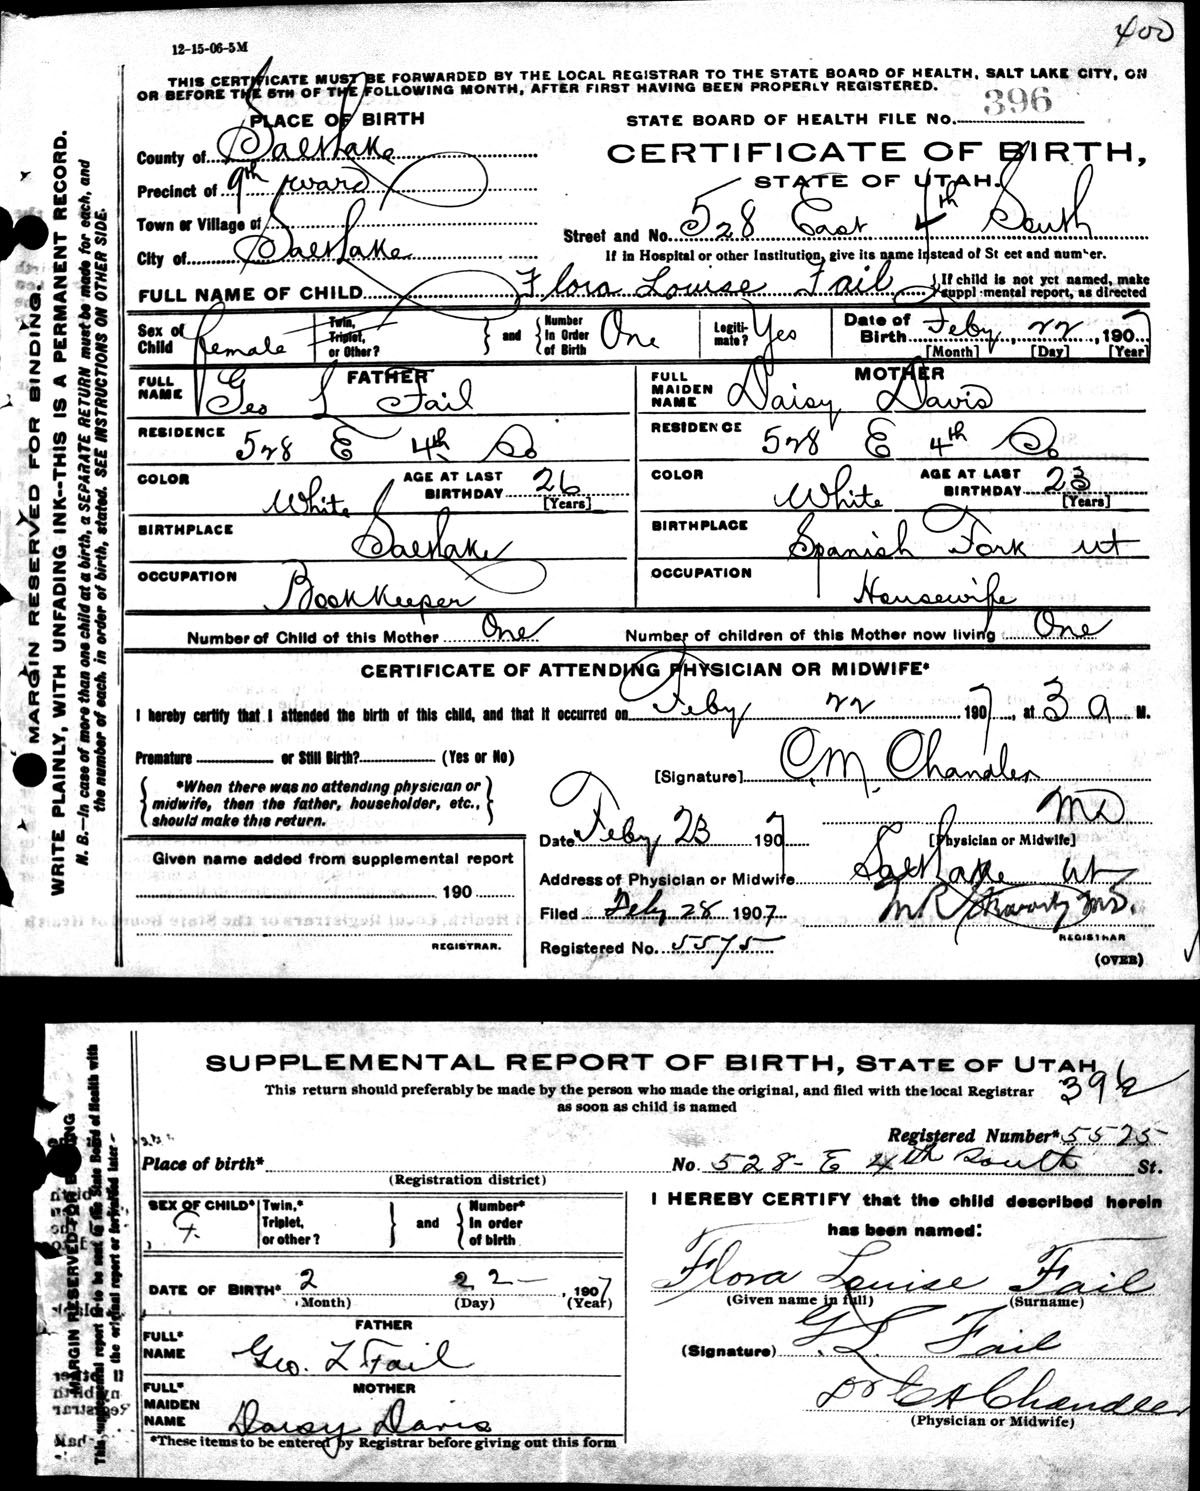 400
12-15-06-5M
THIS CERTIFICATE MUST BE FORWARDED BY THE LOCAL REGISTRAR TO THE STATE BOARD OF HEALTH, SALT LAKE CITY, ON
OR BEFORE THE 5TH OF THE FOLLOWING MONTH, AFTER FIRST HAVING BEEN PROPERLY REGISTERED.
PLACE OF BIRTH
STATE BOARD OF HEALTH FILE NO. 396
County of Salt Lake
CERTIFICATE OF BIRTH,
Precinct of 9th ward
STATE OF UTAH.
Town or Village of
Street and No. 528 East 4th South
City of Salt Lake
If in Hospital or other Institution, give its name instead of St eet and number.
FULL NAME OF CHILD Flora Louise Fail
If child is not yet named, make
suppl mental report, as directed
Sex of Child Female Twin, Triplet, or Other? and Number In Order of Birth One Legiti- mate? Yes Date of Birth Feby 22, 1907
[Month] [Day] [Year]
FATHER
FULL NAME Geo L Fail
MOTHER
FULL MAIDEN NAME Daisy Davis
RESIDENCE 528 E 4th So
RESIDENCE 528 E 4th So
COLOR White AGE AT LAST BIRTHDAY 26 [Years]
COLOR White AGE AT LAST BIRTHDAY 23 [Years]
BIRTHPLACE Salt Lake
BIRTHPLACE Spanish Fork ut
OCCUPATION Bookkeeper
OCCUPATION Housewife
Number of Child of this Mother One
Number of children of this Mother now living One
CERTIFICATE OF ATTENDING PHYSICIAN OR MIDWIFE*
I hereby certify that I attended the birth of this child, and that it occurred on Feby 22 1907, at 3 a M.
Premature or Still Birth? (Yes or No)
[Signature] C.M. Chandler
*When there was no attending physician or
midwife, then the father, householder, etc.,
should make this return.
MD
Date Feby 23 1907
[Physician or Midwife]
Given name added from supplemental report
Address of Physician or Midwife Salt Lake ut
190
Filed Feby 28 1907
M.D.
REGISTRAR.
Registered No. 5575
REGISTRAR
(OVER)
MARGIN RESERVED FOR BINDING.
WRITE PLAINLY, WITH UNFADING INK--THIS IS A PERMANENT RECORD.
N. B.—In case of more than one child at a birth, a SEPARATE RETURN must be made for each, and
the number of each, in order of birth, stated. SEE INSTRUCTIONS ON OTHER SIDE.
SUPPLEMENTAL REPORT OF BIRTH, STATE OF UTAH
This return should preferably be made by the person who made the original, and filed with the local Registrar
as soon as child is named
396
Registered Number* 5575
Place of birth*
No. 528- E 4th South St.
(Registration district)
SEX OF CHILD* F. Twin,* Triplet, or other? and Number* In order of birth
I HEREBY CERTIFY that the child described herein
has been named:
Flora Louise Fail
DATE OF BIRTH* 2 22 - , 1907
(Month) (Day) (Year)
(Given name in full) (Surname)
FATHER
FULL* NAME Geo. L Fail
(Signature) G. L. Fail
MOTHER
FULL* MAIDEN NAME Daisy Davis
Dr Chandler
(Physician or Midwife)
*These items to be entered by Registrar before giving out this form